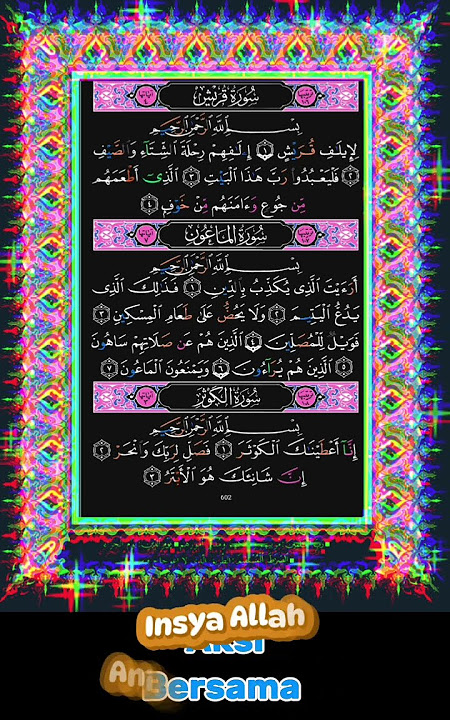 سُورَةُ قُرَيْشٍ
بِسْمِ ٱللَّهِ ٱلرَّحْمَٰنِ ٱلرَّحِيمِ
لِإِيلَٰفِ قُرَيْشٍ ١ إِۦلَٰفِهِمْ رِحْلَةَ ٱلشِّتَآءِ وَٱلصَّيْفِ
٢ فَلْيَعْبُدُوا۟ رَبَّ هَٰذَا ٱلْبَيْتِ ٣ ٱلَّذِىٓ أَطْعَمَهُم
مِّن جُوعٍ وَءَامَنَهُم مِّنْ خَوْفٍۭ ٤
سُورَةُ المَاعُونِ
بِسْمِ ٱللَّهِ ٱلرَّحْمَٰنِ ٱلرَّحِيمِ
أَرَءَيْتَ ٱلَّذِى يُكَذِّبُ بِٱلدِّينِ ١ فَذَٰلِكَ ٱلَّذِى
يَدُعُّ ٱلْيَتِيمَ ٢ وَلَا يَحُضُّ عَلَىٰ طَعَامِ ٱلْمِسْكِينِ ٣
فَوَيْلٌ لِّلْمُصَلِّينَ ٤ ٱلَّذِينَ هُمْ عَن صَلَاتِهِمْ سَاهُونَ
٥ ٱلَّذِينَ هُمْ يُرَآءُونَ ٦ وَيَمْنَعُونَ ٱلْمَاعُونَ ٧
سُورَةُ الكَوْثَرِ
بِسْمِ ٱللَّهِ ٱلرَّحْمَٰنِ ٱلرَّحِيمِ
إِنَّآ أَعْطَيْنَٰكَ ٱلْكَوْثَرَ ١ فَصَلِّ لِرَبِّكَ وَٱنْحَرْ ٢
إِنَّ شَانِئَكَ هُوَ ٱلْأَبْتَرُ ٣
602
Insya Allah
Aksi
Bersama